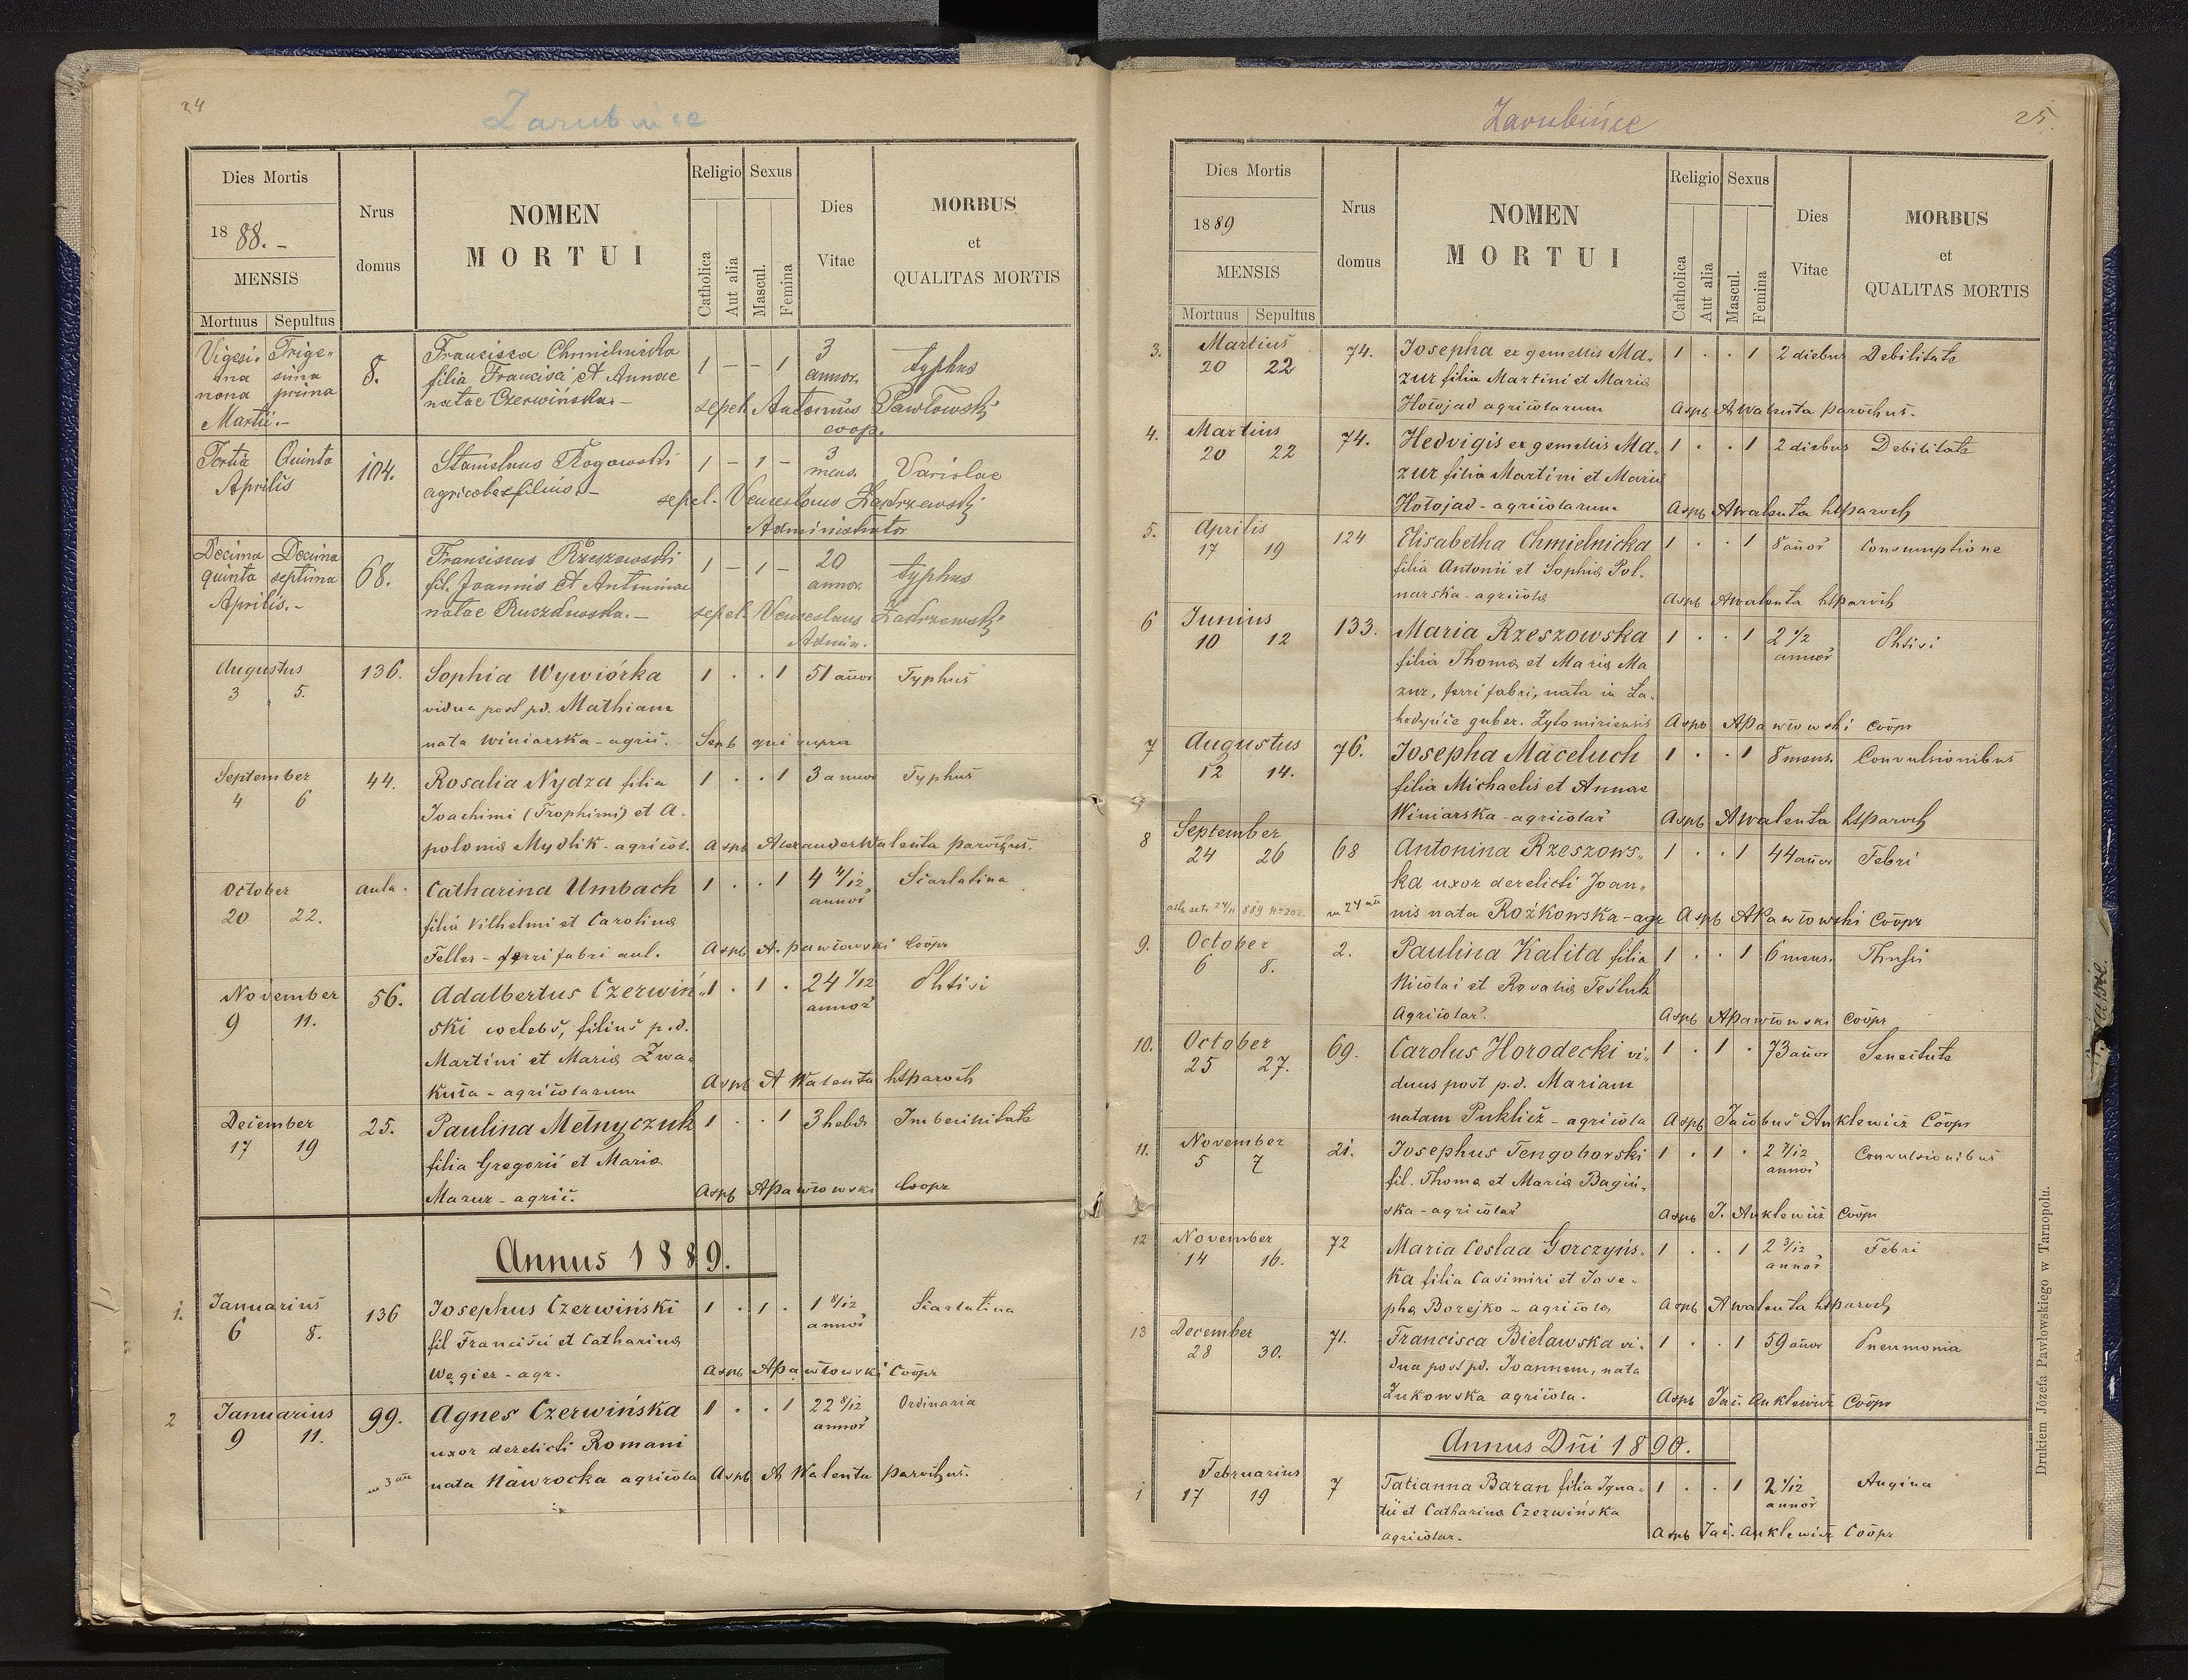 24
Zarubińce
Dies Mortis
1888.-
MENSIS
Mortuus Sepultus
Nrus domus
NOMEN
MORTUI
Religio Sexus
Catholica
Aut alia
Mascul.
Femina
Dies
Vitae
MORBUS
et
QUALITAS MORTIS
Vigesi- Trige- Francisca Chmielnicka 3
ma sima 8. filia Francisci et Annae 1 - - 1 annor. typhus
nona prima natae Czerwińska.- sepel. Antonius Pawłowski
Martii.- coop.
Tertia Quinta 104. Stanislaus Rogowski 1 - 1 - 3 mens. Variolae
Aprilis agricolae filius.- sepel. Venceslaus Zakrzewski
Administrator
Decima Decima Franciscus Rzeszowski 1 - 1 - 20
quinta septima 68. fil. Joannis et Antoninae annor. typhus
Aprilis.- natae sepel. Venceslaus Zakrzewski
Admin.
Augustus 136. Sophia Wywiórka 1 . . 1 51 anor Typhus
3 5. vidua post pd. Mathiam
nata Winiarska - agric. Sepb qui supra
September 44. Rosalia Nydza filia 1 . . 1 3 annor Typhus
4 6 Joachimi (Trophimi) et A-
polonia Mydlik - agricol. Aspb Alexander Walenta parochus.
October aula. Catharina Umbach 1 . . 1 4 4/12 Scarlatina
20 22. filia Vilhelmi et Carolina annor
Feller - ferri fabri aul. Aspb A. Pawłowski Coopr
November 56. Adalbertus Czerwiń- 1 . 1 . 24 1/12 Phtisi
9 11. ski celebs, filius p.d. annor
Martini et Maria Zwa-
kuta - agricolarum Aspb A Walenta hsparoch
December 25. Paulina Mełnyczuk 1 . . 1 3 hebd Imbecilitate
17 19 filia Gregorii et Maria
Mazur - agric. Aspb APawłowski Coopr
Annus 1889.
1. Januarius 136 Josephus Czerwiński 1 . 1 . 1 8/12 Scarlatina
6 8. fil Francisci et Catharina annor
Węgier - agr. Aspb APawłowski Coopr
2 Januarius 99. Agnes Czerwińska 1 . . 1 22 8/12 Ordinaria
9 11. uxor derelicti Romani annor
nata Nawrocka agricola Aspb A Walenta parochus.
25.
Zarubińce
Dies Mortis
1889
MENSIS
Mortuus Sepultus
Nrus domus
NOMEN
MORTUI
Religio Sexus
Catholica
Aut alia
Mascul.
Femina
Dies
Vitae
MORBUS
et
QUALITAS MORTIS
3. Martius 74. Josepha ex gemellis Ma- 1 . . 1 2 diebus Debilitate
20 22 zur filia Martini et Maria
Hołojad agricolarum Aspb AWalenta parochus.
4. Martius 74. Hedvigis ex gemellis Ma- 1 . . 1 2 diebus Debilitate
20 22 zur filia Martini et Maria
Hołojad - agricolarum Aspb AWalenta hsparoch
5. Aprilis 124 Elisabetha Chmielnicka 1 . . 1 8 anor Consumptione
17 19 filia Antonii et Sophia Pol-
narska - agricola Aspb AWalenta hsparoch
6 Junius 133. Maria Rzeszowska 1 . . 1 2 1/2 Phtisi
10 12 filia Thoma et Maria Ma annor
zur, ferri fabri, nata in La-
guber. Zytomiriensis Aspb APawłowski Coopr
7 Augustus 76. Josepha Maceluch 1 . . 1 8 mens. Convulsionibus
12 14. filia Michaelis et Annae
Winiarska - agricolar Aspb AWalenta hsparoch
8 September 68 Antonina Rzeszows- 1 . . 1 44 anor Febri
24 26 ka uxor derelicti Joan-
nis nata Rożkowska - agr Aspb APawłowski Coopr
9. October 2. Paulina Kalita filia 1 . . 1 6 mens. Thusji
6 8. Nicolai et Rosalia Teśluk
Agricolar. Aspb APawłowski Coopr
10. October 69. Carolus Horodecki vi- 1 . 1 . 73 anor Senectute
25 27. duus post p.d. Mariam
natam Puklicz - agricola Aspb Jacobus Anklewicz Coopr
11. November 21. Josephus Tengoborski 1 . 1 . 2 7/12 Convulsionibus
5 7 fil. Thoma et Maria Bagiń- annor
ska - agricolar Aspb J. Anklewicz Coopr
12 November 72 Maria Ceslaa Gorczyńs- 1 . . 1 2 3/12 Febri
14 16. ka filia Casimiri et Jose- annor
pha Borejko - agricola Aspb AWalenta hsparoch
13 December 71. Francisca Bielawska vi- 1 . . 1 59 anor Pneumonia
28 30. dua post pd. Joannem, nata
Zukowska agricola. Aspb Jac. Anklewicz Coopr
Annus Dni 1890.
1 Februarius 7 Tatianna Baran filia Igna- 1 . . 1 2 1/12 Angina
17 19 tii et Catharina Czerwińska annor
agricolar. Aspb Jac. Anklewicz Coopr
Drukiem Józefa Pawłowskiego w Tarnopolu.